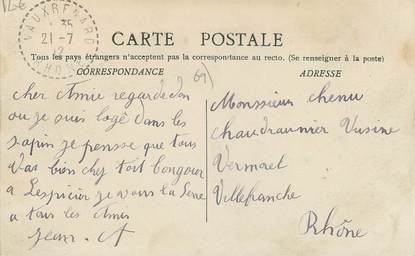 VAUXRENARD
21-7
12
RHÔNE
(69)
CARTE POSTALE
Tous les pays étrangers n'acceptent pas la correspondance au recto. (Se renseigner à la poste)
CORRESPONDANCE
ADRESSE
cher Amie regarde don
ou je suis logé dans les
sapin je pensse que tous
vas bien chef toit bongour
a Lespicier je vous la Serre
a tous les Amis
Jean. A
Monsieur chenu
chaudraunnier Vusine
Vermorel
Villefranche
Rhône